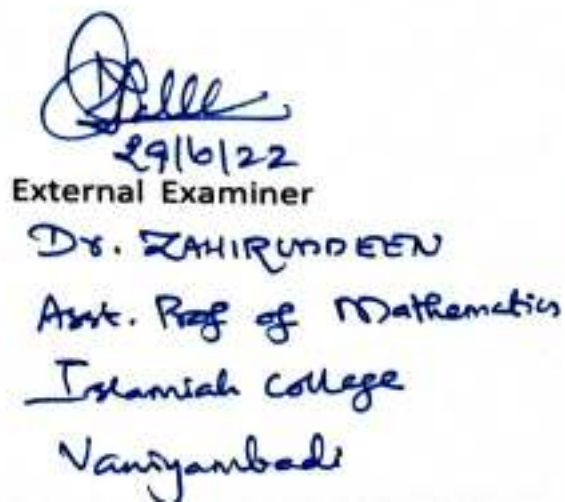 29/6/22
External Examiner
Dr. ZAHIRUDDEEN
Asst. Prof of Mathematics
Islamiah College
Vaniyambadi